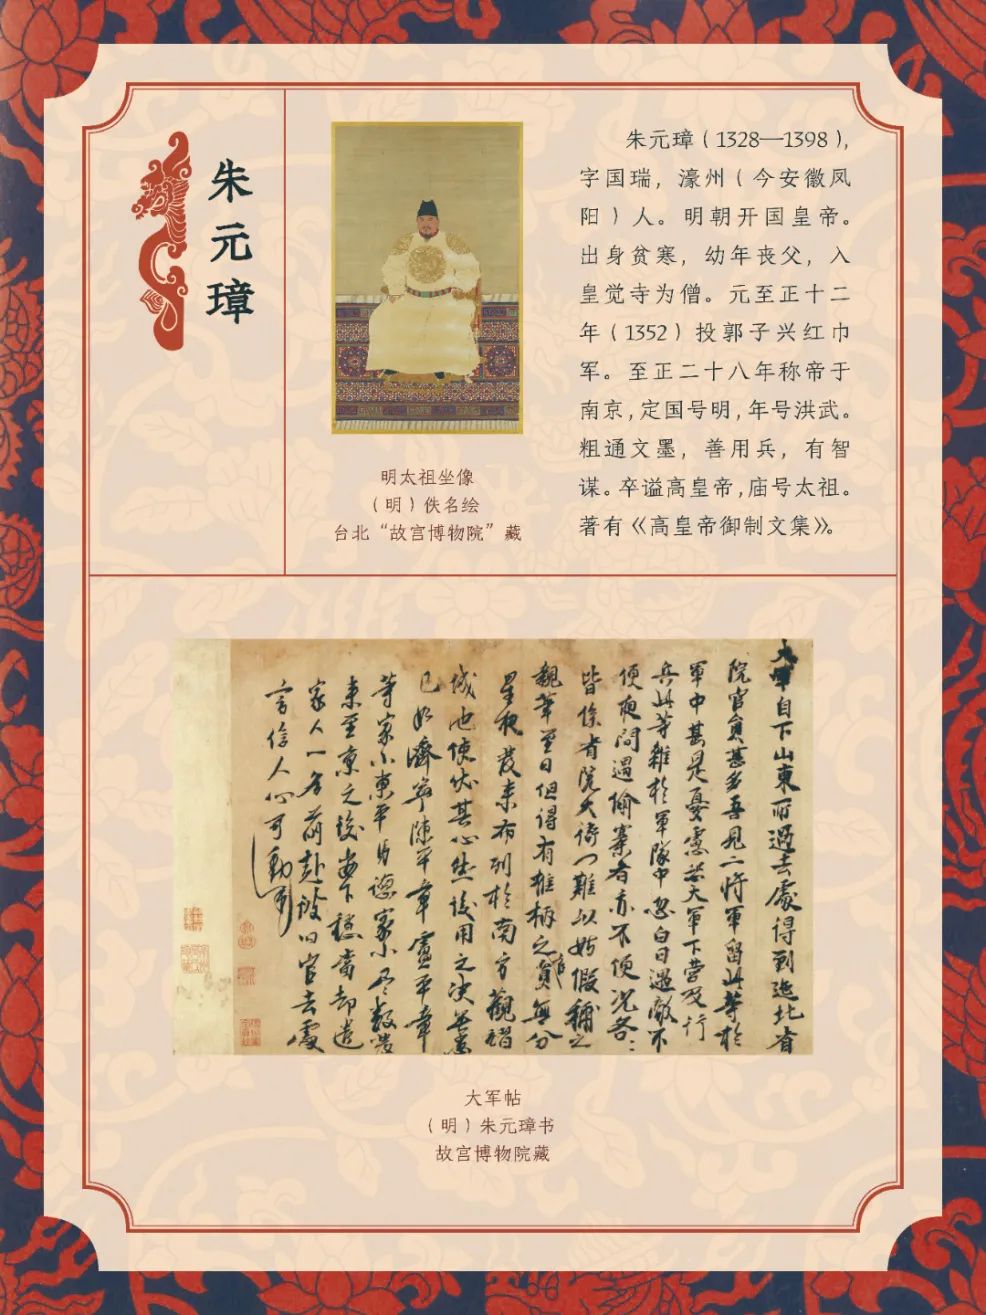 朱元璋
明太祖坐像
（明）佚名绘
台北“故宫博物院”藏
朱元璋（1328—1398），
字国瑞，濠州（今安徽凤
阳）人。明朝开国皇帝。
出身贫寒，幼年丧父，入
皇觉寺为僧。元至正十二
年（1352）投郭子兴红巾
军。至正二十八年称帝于
南京，定国号明，年号洪武。
粗通文墨，善用兵，有智
谋。卒谥高皇帝，庙号太祖。
著有《高皇帝御制文集》。
大軍自下山東所過去處得到迤北省
院官員甚多吾見二將軍留此等於
軍中甚是憂慮恐大軍下營及行
兵此等雜於軍隊中忽白日遇敵不
便夜間遇偷寨者亦不便况各〻
皆係省院大衙门難以姑假補之
親筆至日但得有椎柄之官員無分
星夜發来布列於南方觀
城池使伏其心然後用之决無患
已如濟寧陳平章盧平章
等家小東平馬德家小尽数發
来至京之後安下穩當却遣
家人一名前赴彼旧官去處
言信人心可動
大军帖
（明）朱元璋书
故宫博物院藏